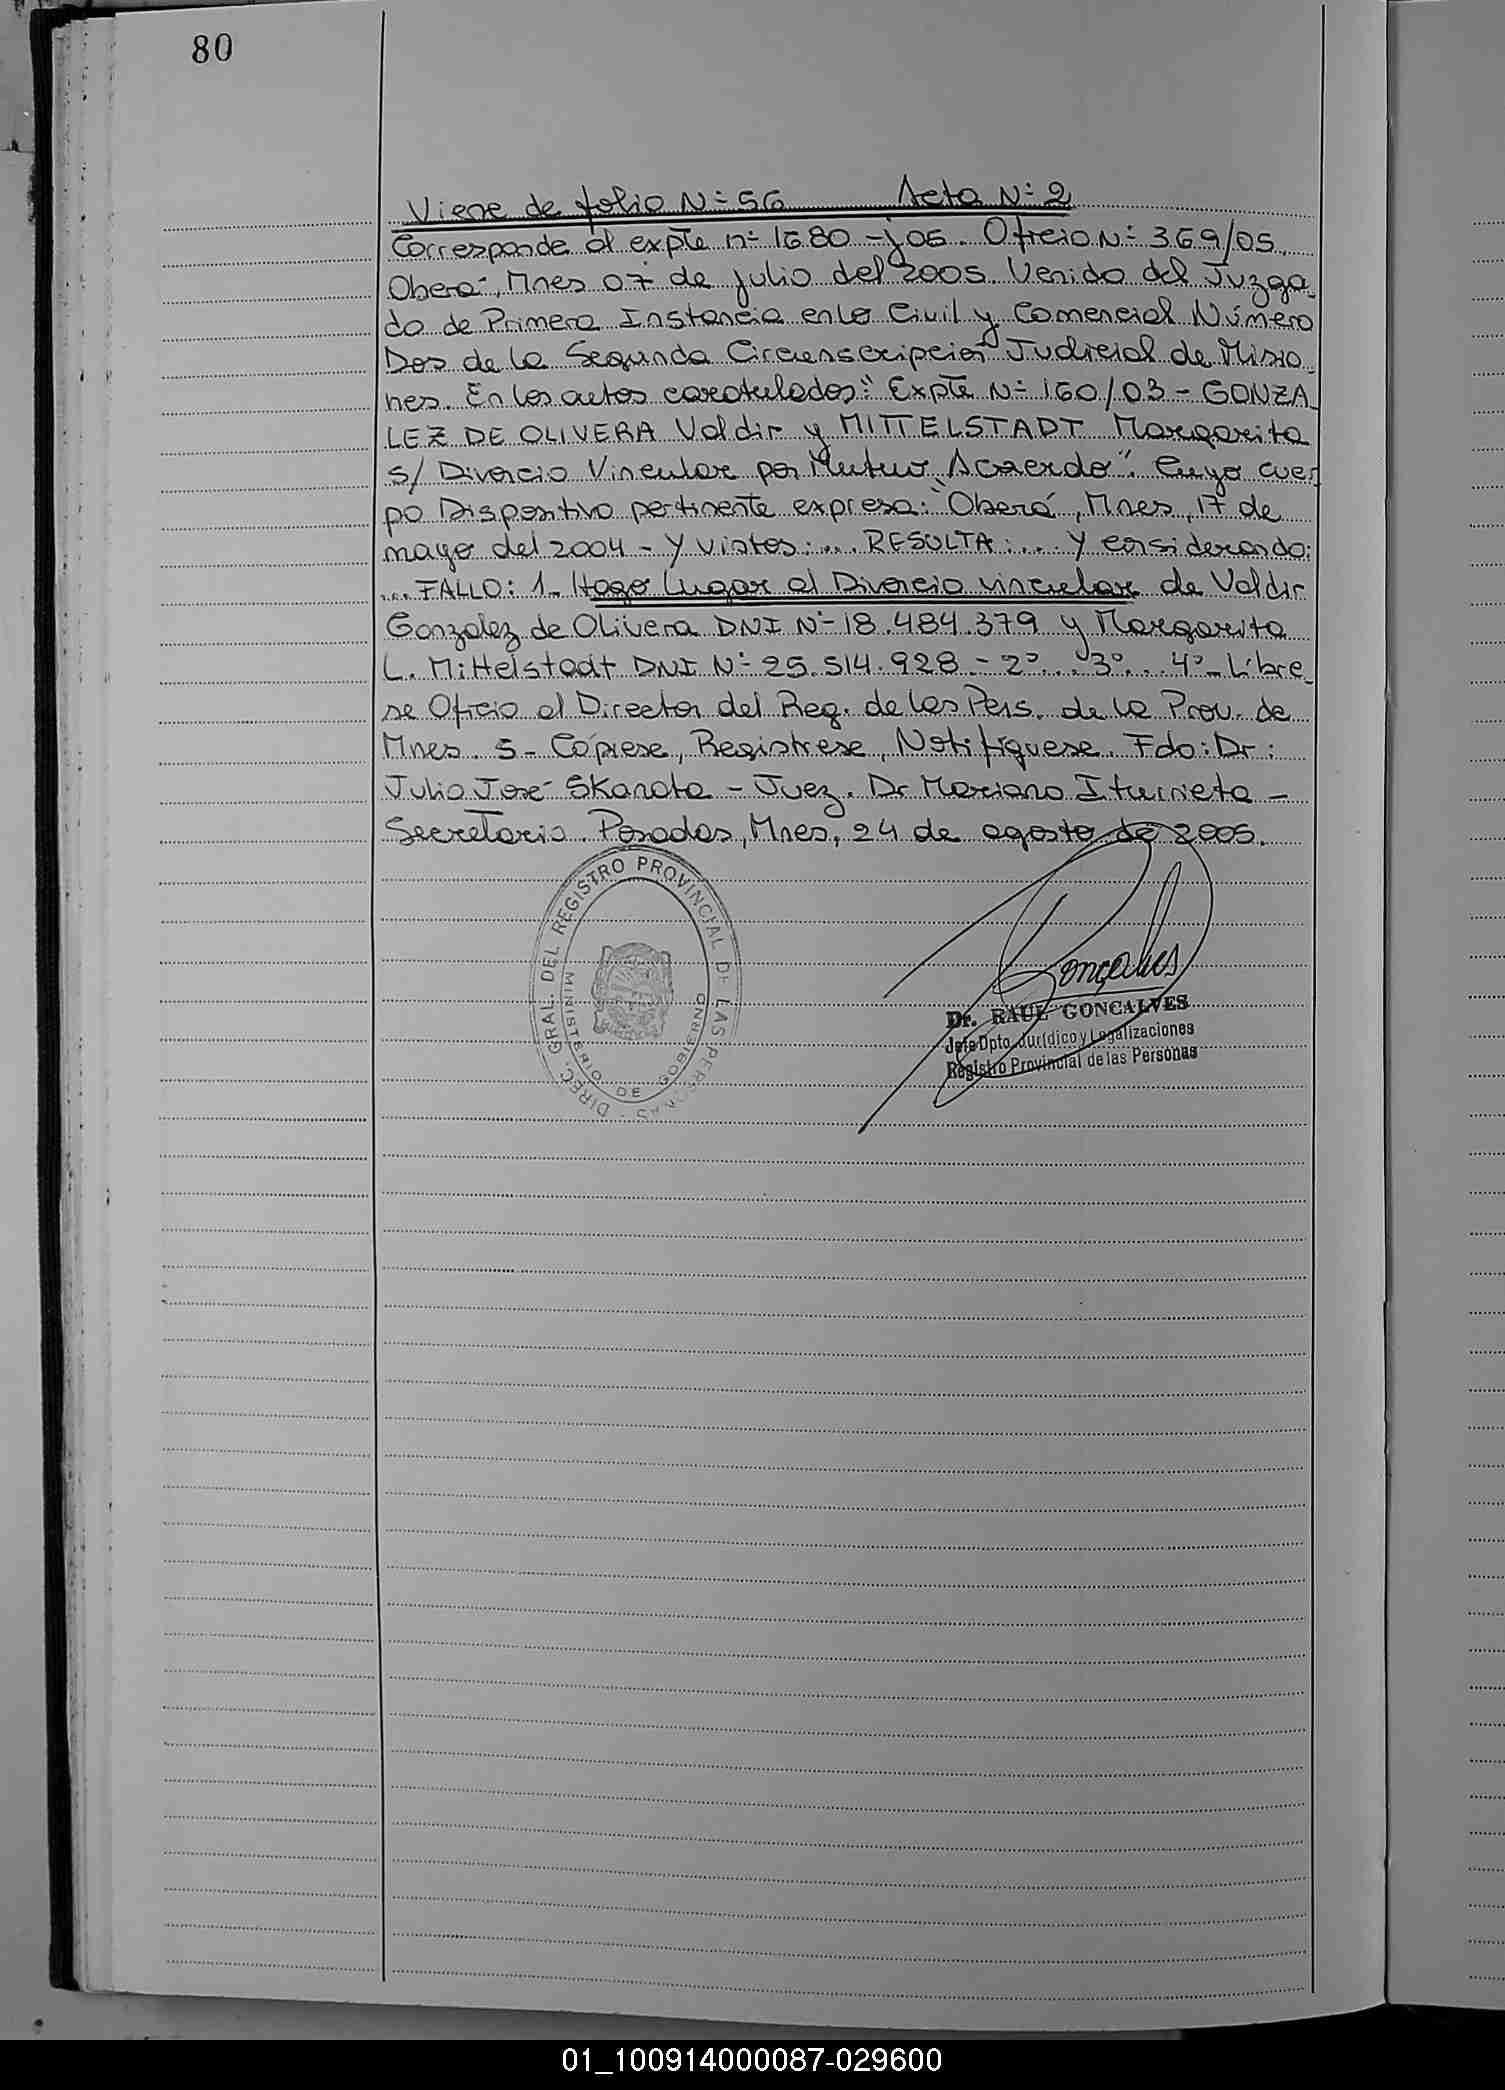 80
Viene de folio N° 56 Acta N° 2
Corresponde al expte n° 1680 - j 05. Oficio N° 369/05.
Oberá, Mnes 07 de julio del 2005. Venido del Juzga
do de Primera Instancia en lo Civil y Comercial Número
Dos de la Segunda Circunscripción Judicial de Misio
nes. En los autos caratulados: "Expte N° 160/03 - GONZA
LEZ DE OLIVERA Valdir y MITTELSTADT Margarita
s/ Divorcio Vincular por Mutuo Acuerdo". Cuyo cuer
po Dispositivo pertinente expresa: "Oberá, Mnes, 17 de
mayo del 2004 - Y vistos:... RESULTA:... Y considerando:
... FALLO: 1- Hago Lugar al Divorcio vincular de Valdir
Gonzalez de Olivera DNI N° 18.484.379 y Margarita
L. Mittelstadt DNI N° 25.514.928 - 2°... 3°... 4°- Líbre
se Oficio al Director del Reg. de las Pers. de la Prov. de
Mnes. 5- Cópiese, Regístrese, Notifíquese. Fdo: Dr:
Julio José Skanata - Juez. Dr Mariano Iturrieta -
Secretario. Posadas, Mnes, 24 de agosto de 2005.
DIREC. GRAL. DEL REGISTRO PROVINCIAL DE LAS PERSONAS -
MINISTERIO DE GOBIERNO
Goncalves
Dr. RAUL GONCALVES
Jefe Dpto. Jurídico y Legalizaciones
Registro Provincial de las Personas
01_100914000087-029600